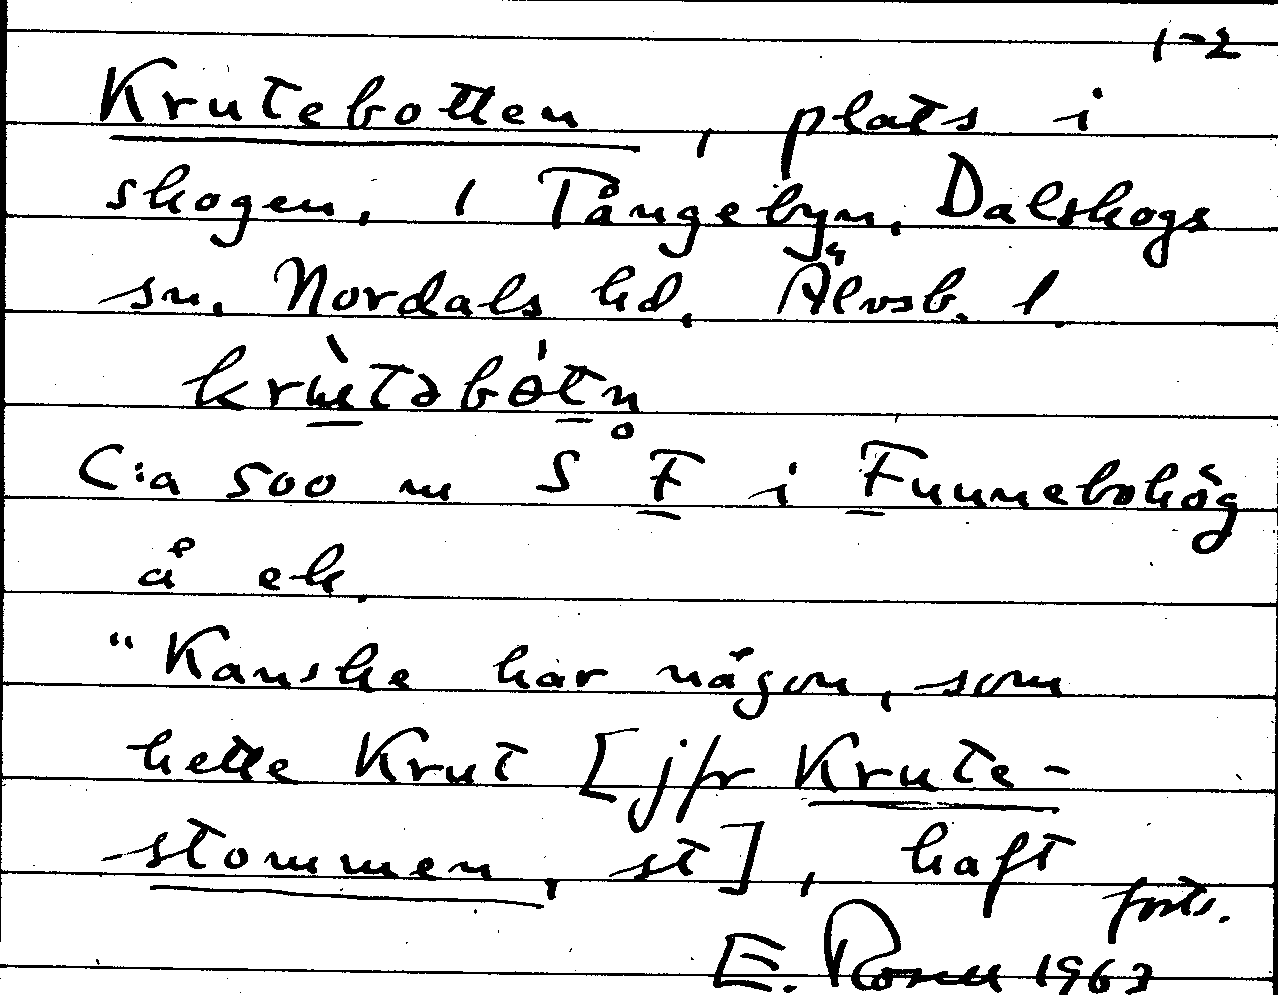 1-2
Krutebotten, plats i
skogen, 1 Tångebyn, Dalskogs
sn, Nordals hd, Älvsb. l.
krùtəbótn̥
C:a 500 m S F i Funnebohög
å ek.
"Kanske har någon, som
hette Krut [jfr Krute-
stommen, st], haft
forts.
E. 1963